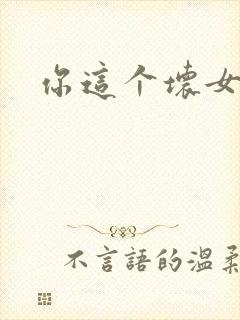 你這个壊女
不言語的温柔